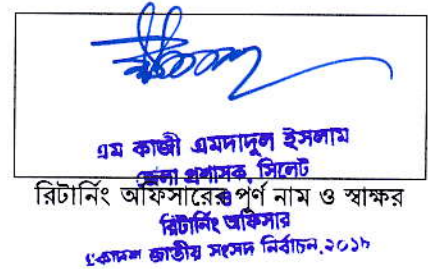 এম কাজী এমদাদুল ইসলাম
জেলা প্রশাসক, সিলেট
ও
রিটার্নিং অফিসারের পূর্ণ নাম ও স্বাক্ষর
রিটার্নিং অফিসার
একাদশ জাতীয় সংসদ নির্বাচন,২০১৮